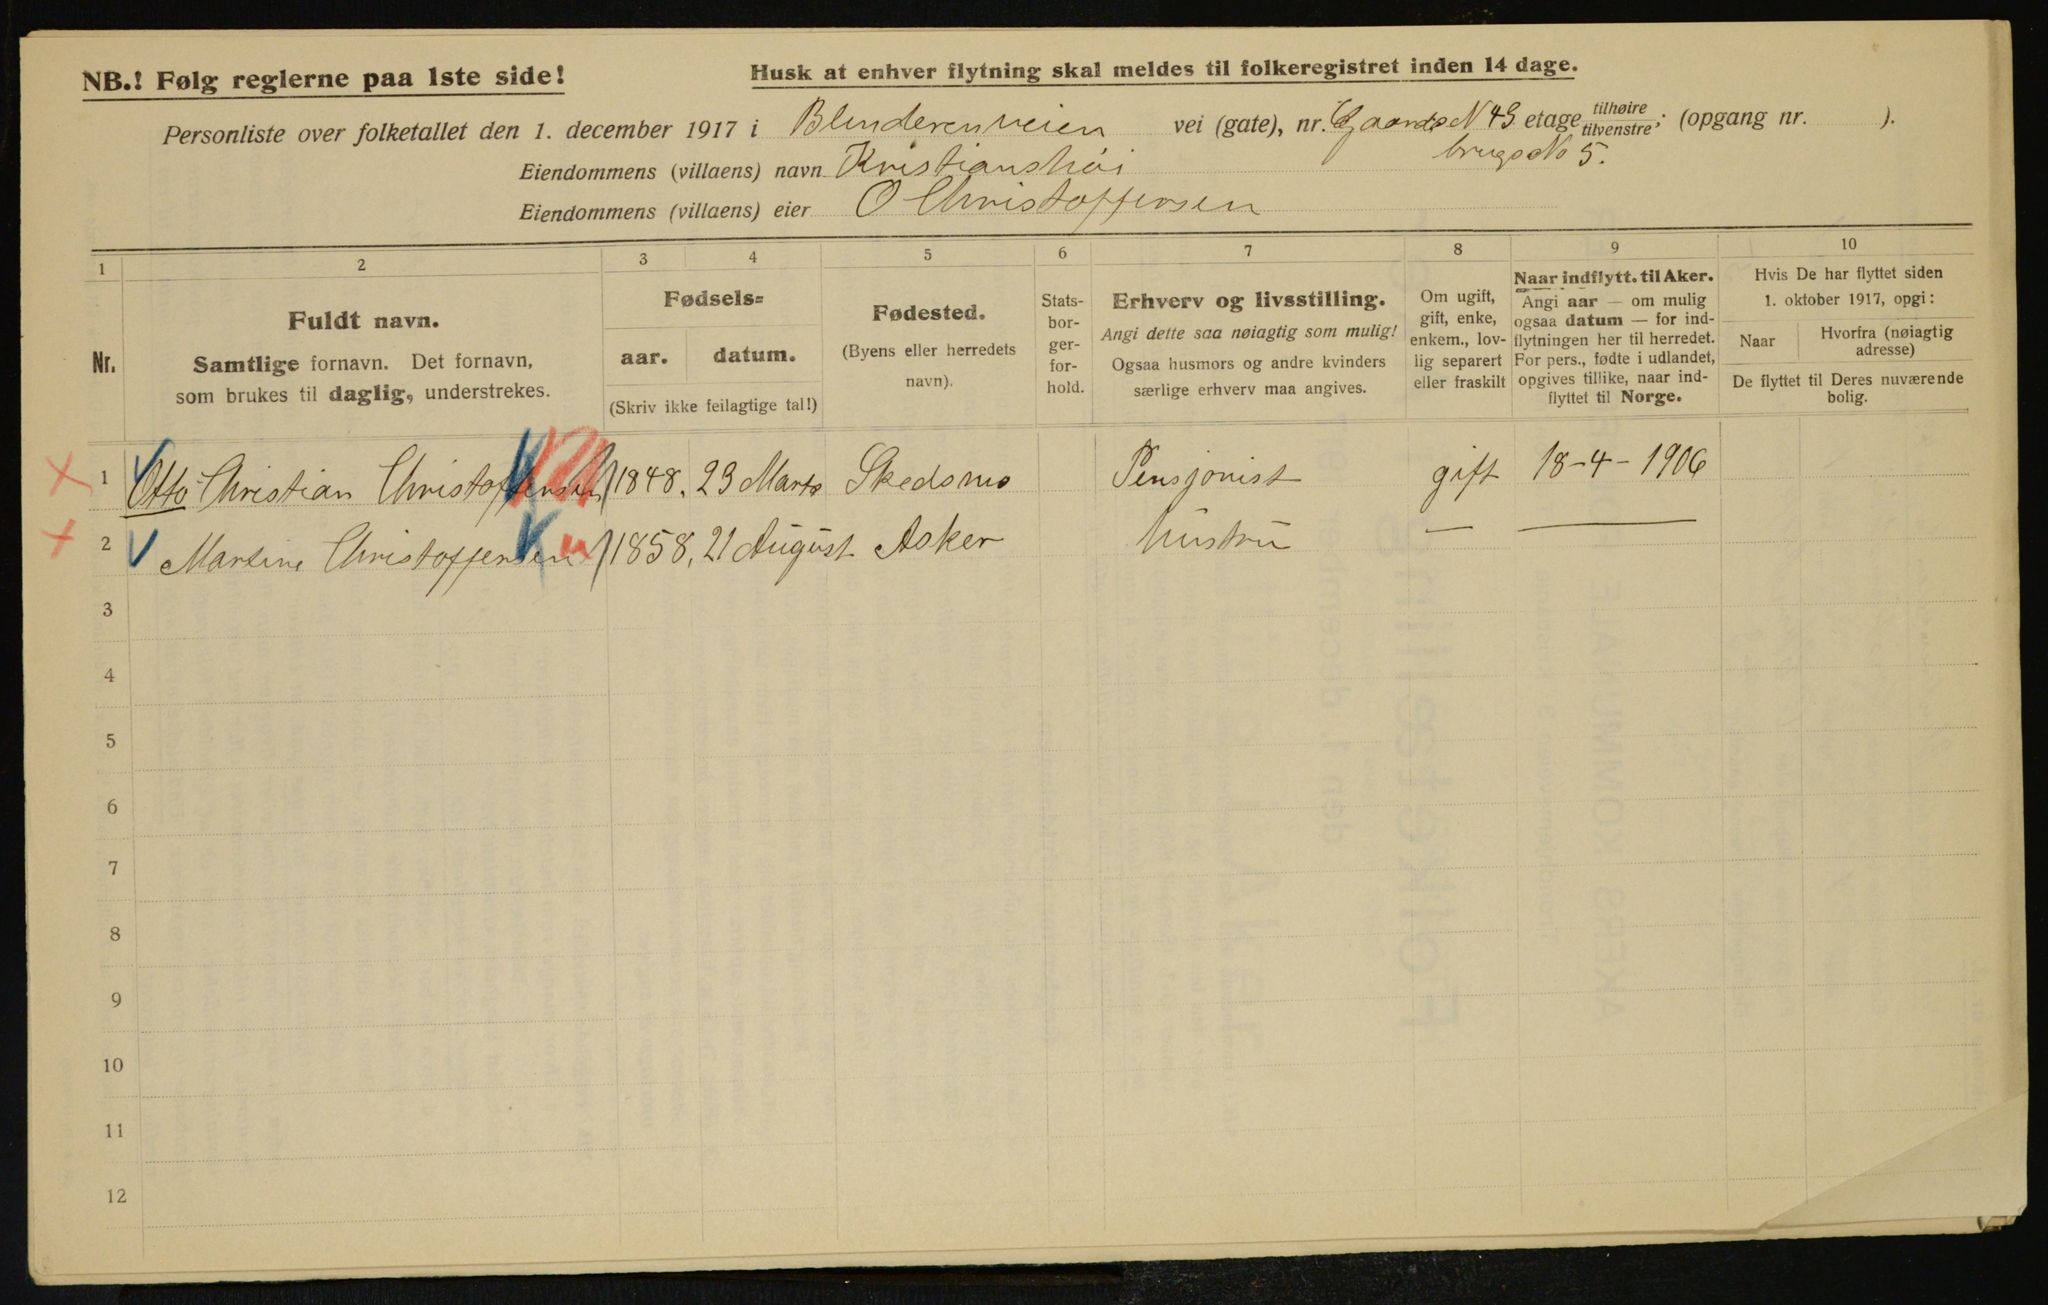 NB.! Følg reglerne paa 1ste side!
Husk at enhver flytning skal meldes til folkeregistret inden 14 dage.
Personliste over folketallet den 1. december 1917 i Blinderenveien vei (gate), nr. Gaards N 43 etage tilhøire/tilvenstre; (opgang nr. ).
brugs No 5.
Eiendommens (villaens) navn Kristianshøi
Eiendommens (villaens) eier O Christoffersen
1 2 3 4 5 6 7 8 9 10
Nr.
Fuldt navn.
Samtlige fornavn. Det fornavn,
som brukes til daglig, understrekes.
Fødsels=
aar. datum.
(Skriv ikke feilagtige tal!)
Fødested.
(Byens eller herredets
navn).
Stats-
bor-
ger-
for-
hold.
Erhverv og livsstilling.
Angi dette saa nøiagtig som mulig!
Ogsaa husmors og andre kvinders
særlige erhverv maa angives.
Om ugift,
gift, enke,
enkem., lov-
lig separert
eller fraskilt
Naar indflytt. til Aker.
Angi aar — om mulig
ogsaa datum — for ind-
flytningen her til herredet.
For pers., fødte i udlandet,
opgives tillike, naar ind-
flyttet til Norge.
Hvis De har flyttet siden
1. oktober 1917, opgi:
Naar
Hvorfra (nøiagtig
adresse)
De flyttet til Deres nuværende
bolig.
1 Otto Christian Christoffersen 1848. 23 Marts Skedsmo Pensjonist gift 18-4-1906
2 Martine Christoffersen 1858. 21 August Asker hustru — —
3
4
5
6
7
8
9
10
11
12